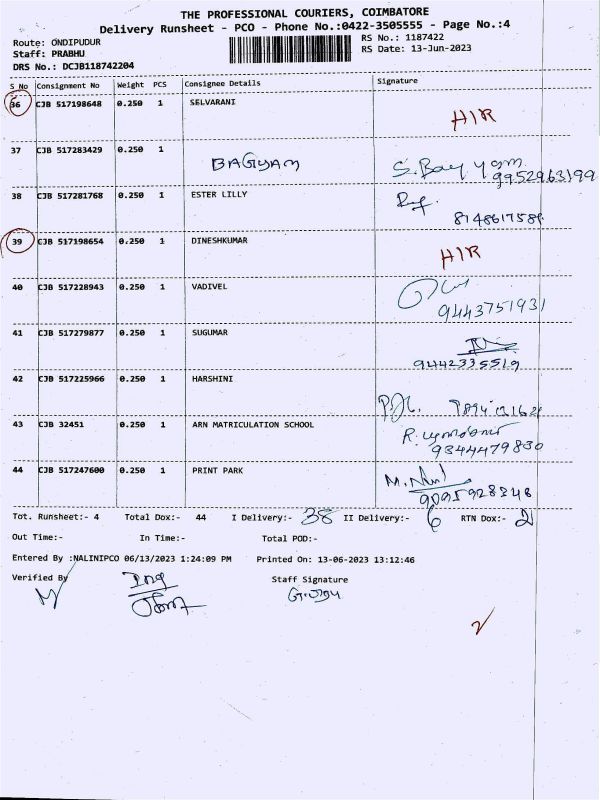 THE PROFESSIONAL COURIERS, COIMBATORE
Delivery Runsheet - PCO - Phone No.:0422-3505555 - Page No.:4
Route: ONDIPUDUR
RS No.: 1187422
Staff: PRABHU
RS Date: 13-Jun-2023
DRS No.: DCJB118742204
S No Consignment No Weight PCS Consignee Details Signature
36 CJB 517198648 0.250 1 SELVARANI
HIR
37 CJB 517283429 0.250 1
BAGYAM
9952963199
38 CJB 517281768 0.250 1 ESTER LILLY
39 CJB 517198654 0.250 1 DINESHKUMAR
HIR
40 CJB 517228943 0.250 1 VADIVEL
9443751931
41 CJB 517279877 0.250 1 SUGUMAR
9442335519
42 CJB 517225966 0.250 1 HARSHINI
43 CJB 32451 0.250 1 ARN MATRICULATION SCHOOL
9344479830
44 CJB 517247600 0.250 1 PRINT PARK
Tot. Runsheet:- 4 Total Dox:- 44 I Delivery:- 38 II Delivery:- 6 RTN Dox:- 2
Out Time:- In Time:- Total POD:-
Entered By :NALINIPCO 06/13/2023 1:24:09 PM Printed On: 13-06-2023 13:12:46
Verified By Staff Signature